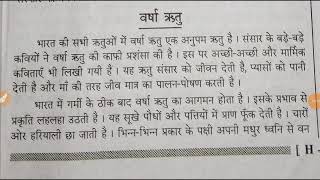 वर्षा ऋतु
भारत की सभी ऋतुओं में वर्षा ऋतु एक अनुपम ऋतु है । संसार के बड़े-बड़े
कवियों ने वर्षा ऋतु की काफी प्रशंसा की है । इस पर अच्छी-अच्छी और मार्मिक
कविताएँ भी लिखी गयी है । यह ऋतु संसार को जीवन देती है, प्यासों को पानी
देती है और माँ की तरह जीव मात्र का पालन-पोषण करती है ।
भारत में गर्मी के ठीक बाद वर्षा ऋतु का आगमन होता है । इसके प्रभाव से
प्रकृति लहलहा उठती है । यह सूखे पौधों और पत्तियों में प्राण फूँक देती है । चारों
ओर हरियाली छा जाती है । भिन्न-भिन्न प्रकार के पक्षी अपनी मधुर ध्वनि से वन
[ H -